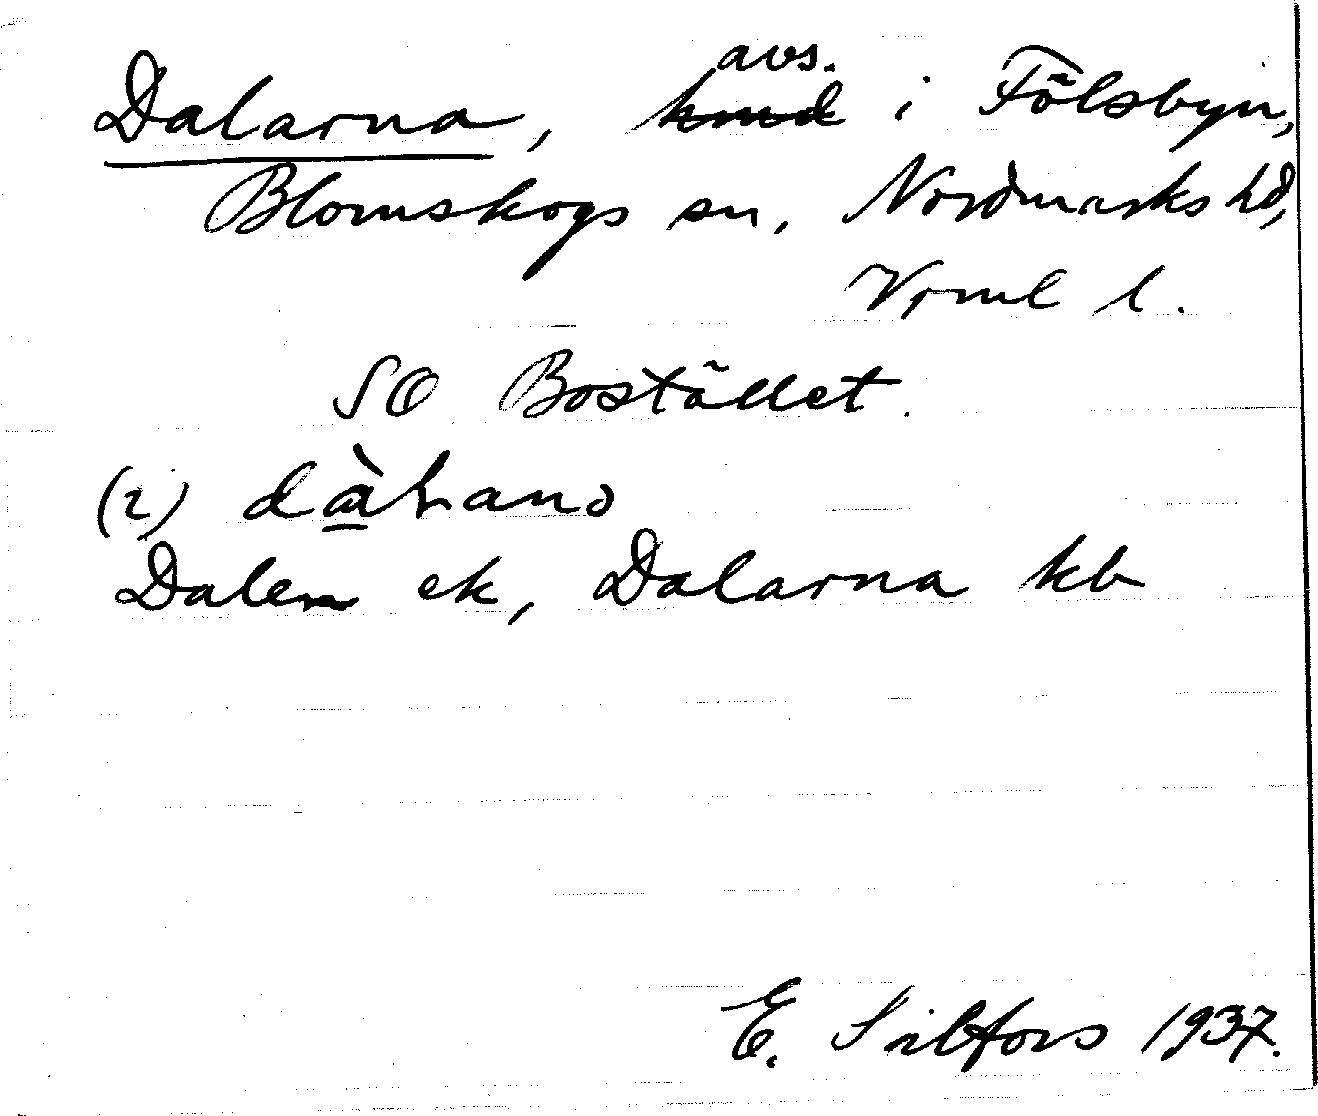 Dalarna, avs. i Fölsbyn,
Blomskogs sn, Nordmarks hd,
Vrml l.
SO Bostället.
(2) dàƚanɔ
Dalen ek, Dalarna kb
E. Silfors 1937.